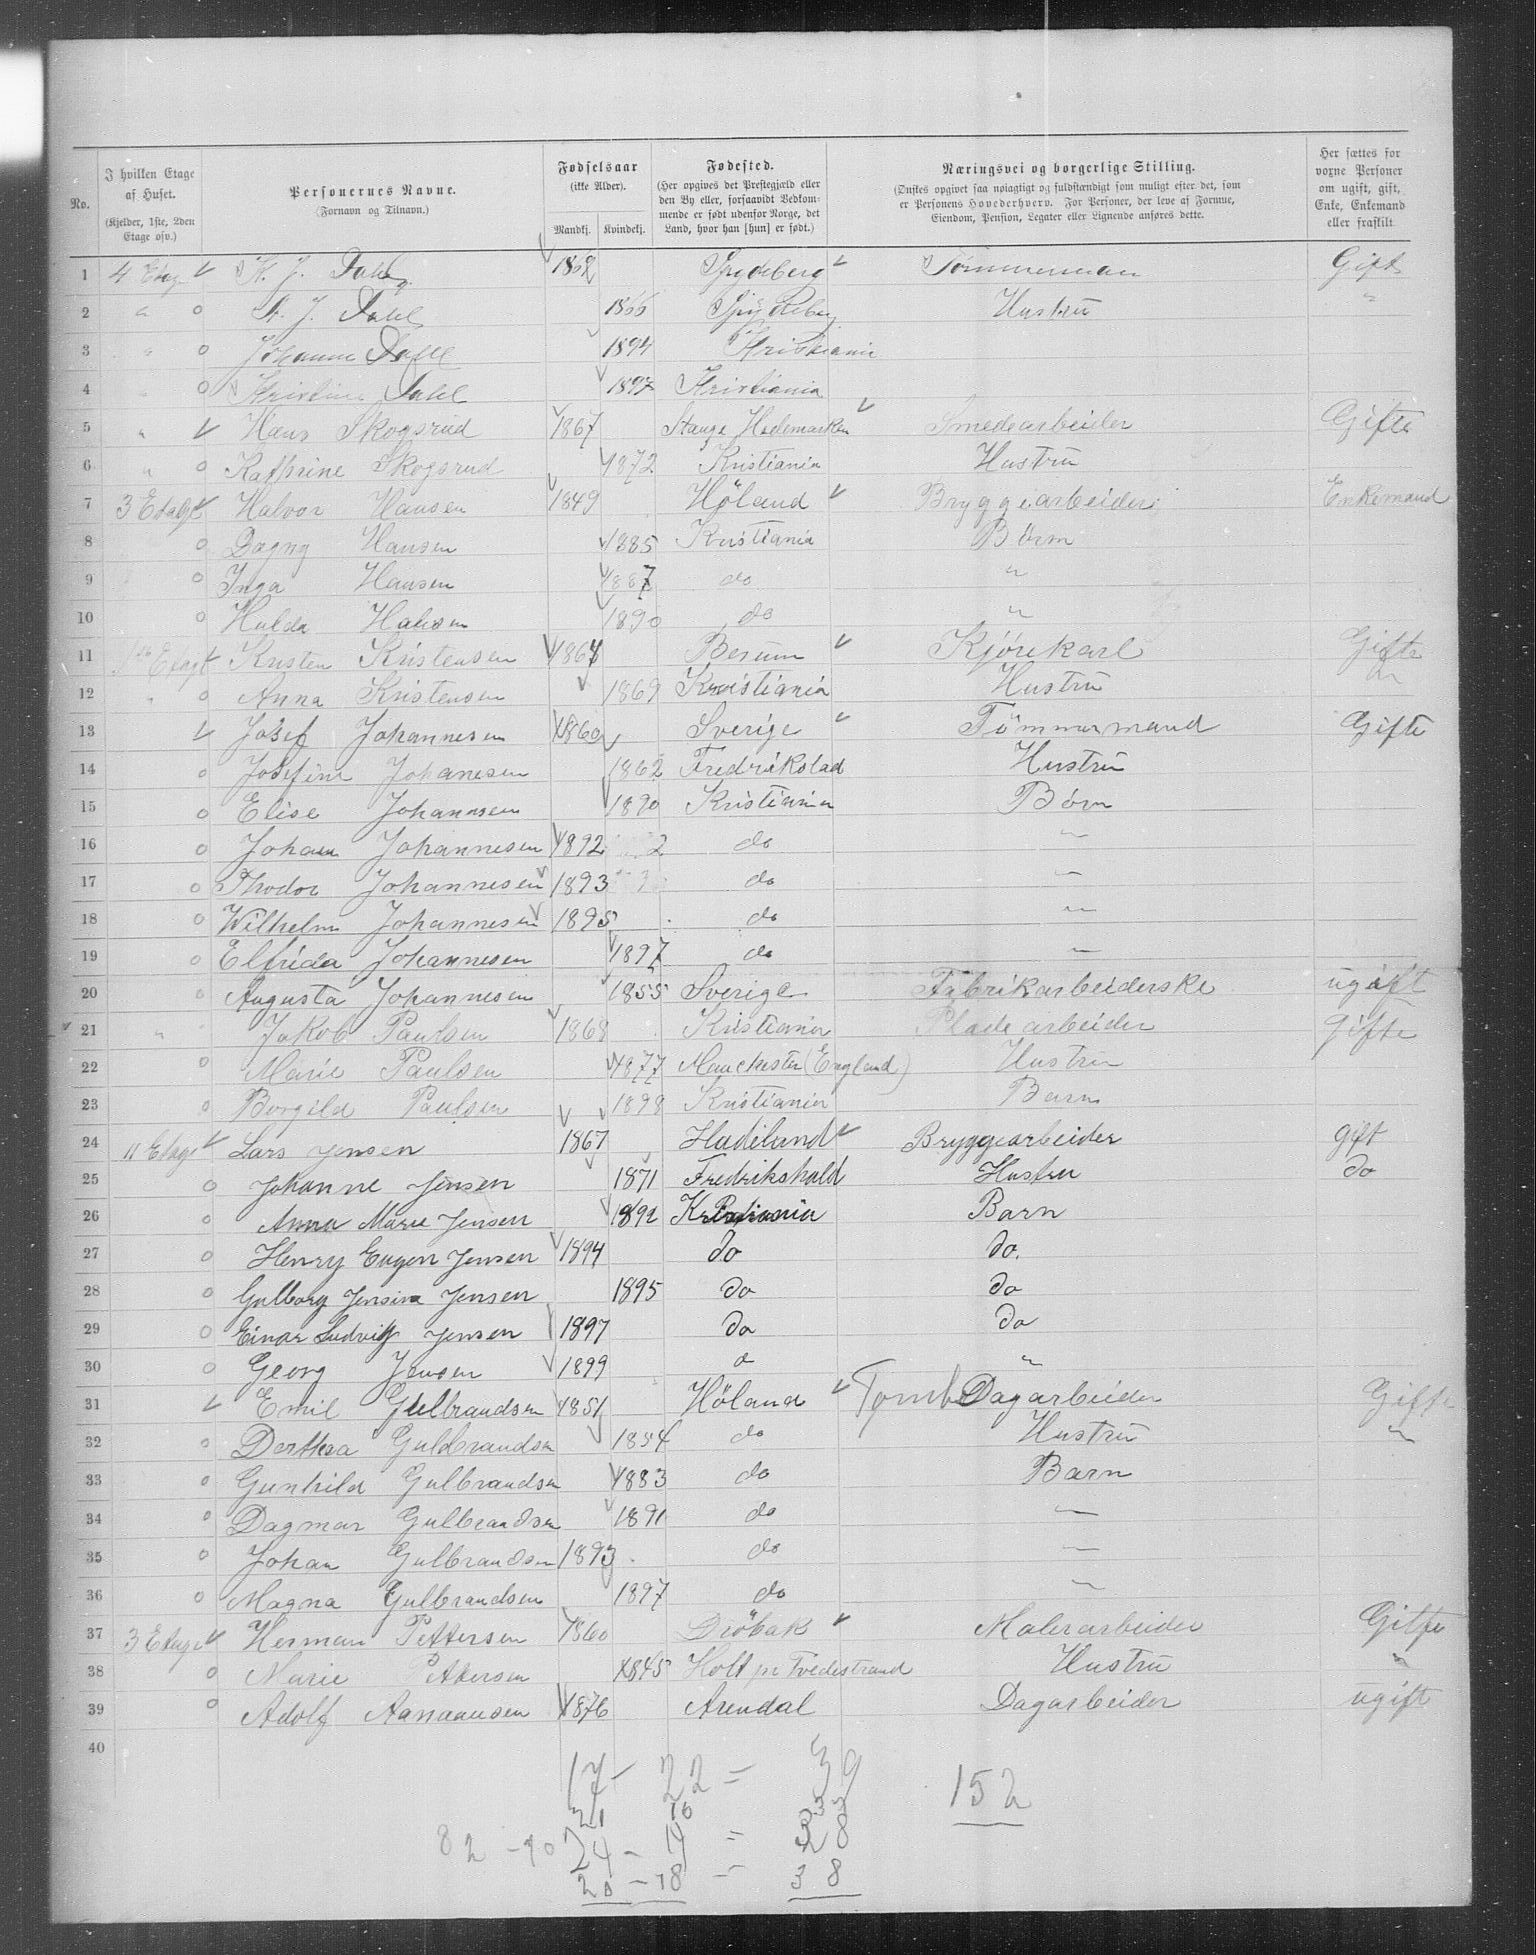 No.
I hvilken Etage af Huset.
(Kjelder, 1ste, 2den Etage osv.)
Personernes Navne.
(Fornavn og Tilnavn.)
Fødselsaar
(ikke Alder).
Mandkj. Kvindekj.
Fødested.
(Her opgives det Prestegjæld eller den By eller, forsaavidt Vedkommende er født udenfor Norge, det Land, hvor han [hun] er født.)
Næringsvei og borgerlige Stilling.
(Ønskes opgivet saa nøiagtigt og fuldstændigt som muligt efter det, som er Personens Hovederhverv. For Personer, der leve af Formue, Eiendom, Pension, Legater eller Lignende anføres dette.
Her sættes for voxne Personer om ugift, gift, Enke, Enkemand eller fraskilt.
1 4 Etage J. Dahl 1862 Spydeberg Tømmerman Gift
2 " o J. Dahl 1866 Spydeberg Hustrü "
3 " o Johanne Dahl 1894 Kristiania
4 " o Kristine Dahl 1897 Kristiania
5 " Hans Skogsrud 1867 Stange Hedemarken Smedearbeider Gifte
6 " o Kathrine Skogsrud 1872 Kristiania Hustrü
7 3 Etage Halvor Hansen 1849 Höland Bryggearbeider Enkemand
8 o Dagny Hansen 1885 Kristiania Børn
9 o Inga Hansen 1887 do "
10 o Hulda Hansen 1890 do "
11 Etage Kristen Kristensen 1864 Berum Kjörekarl Gifte
12 " o Anna Kristensen 1869 Kristiania Hustrü "
13 Josef Johannesen 1860 Sverige Tömmermand Gifte
14 o Josefine Johanesen 1862 Fredrikstad Hustrü
15 o Elise Johannsen 1890 Kristiania Börn
16 o Johan Johannesen 1892 do "
17 o Thodor Johannesen 1893 do "
18 o Wilhelm Johannesen 1895 do "
19 o Elfrida Johannesen 1897 do "
20 o Augusta Johannesen 1855 Sverige Fabrikarbeiderske ugift
21 " Jakob Paulsen 1868 Kristiania Pladearbeider gifte
22 o Marie Paulsen 1877 Manchester (England) Hustru
23 o Borgild Paulsen 1898 Kristiania Barn
24 11 Etage Lars Jensen 1867 Hadeland Bryggearbeider gift
25 o Johanne Jensen 1871 Fredrikshald Hustru do
26 o Anna Marie Jensen 1892 Kristiania Barn
27 o Henry Eugen Jensen 1894 do do.
28 o Gulborg Jensine Jensen 1895 do do
29 o Einar Ludvig Jensen 1897 do do
30 o Georg Jensen 1899 "
31 Emil Gulbrandsen 1851 Höland Tomb Dagarbeider Gifte
32 o Derthea Guldbrandsen 1854 do Hustrü "
33 o Gunhild Gulbrandsen 1883 do Barn
34 o Dagmar Gulbrandsen 1891 do "
35 o Johan Gulbrandsen 1893 do "
36 o Magna Gulbrandsen 1897 do "
37 3 Etage Herman Pettersen 1860 Dröbak Malerarbeider Gifte
38 o Marie Pettersen 1845 Holt pr Tvedestrand Hustrü "
39 o Adolf Aanaansen 1876 Arendal Dagarbeider ugift
40
17 - 22 = 39
152
21 16
82 - 70 24 - =
20 - 18 = 38